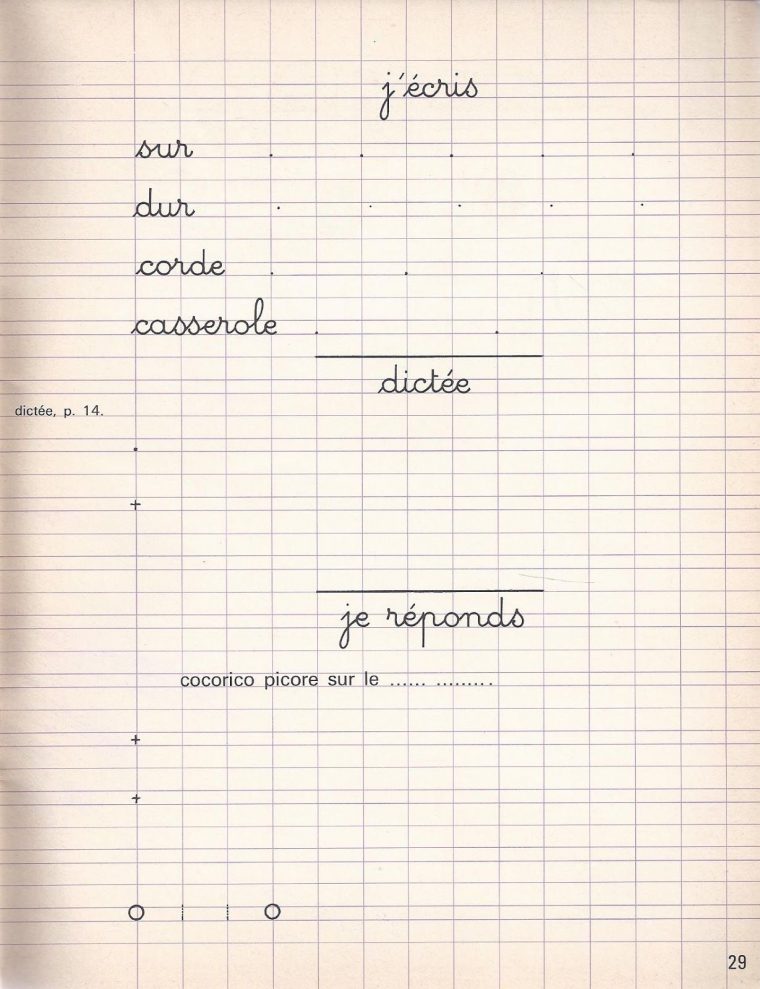 j'écris
sur . . . . .
dur . . . . .
corde . . .
casserole . .
dictée
dictée, p. 14.
.
+
je réponds
cocorico picore sur le ...... .........
+
+
O | | O
29